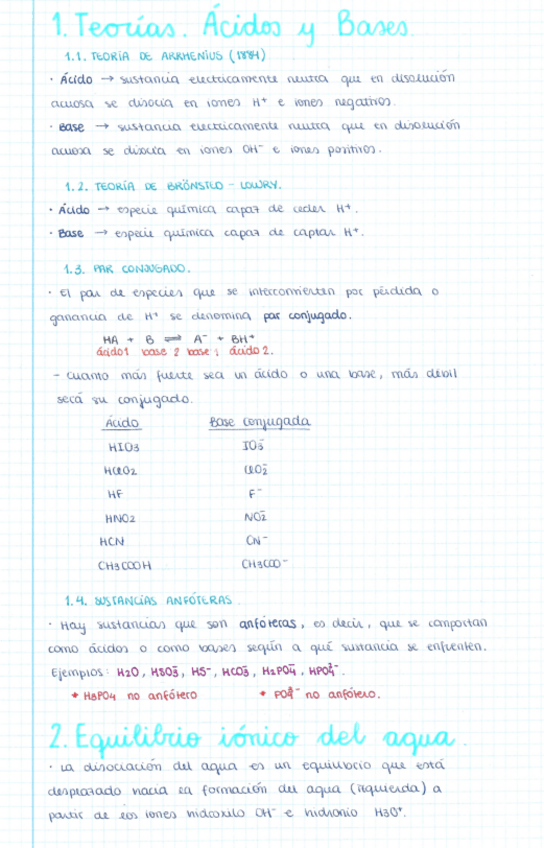 1. Teorías. Ácidos y Bases
1.1. TEORÍA DE ARRHENIUS (1884)
· Ácido → sustancia electricamente neutra que en disolución
acuosa se disocia en iones H⁺ e iones negativos.
· Base → sustancia electricamente neutra que en disolución
acuosa se disocia en iones OH⁻ e iones positivos.
1.2. TEORÍA DE BRÖNSTED - LOWRY.
· Ácido → especie química capaz de ceder H⁺.
· Base → especie química capaz de captar H⁺.
1.3. PAR CONJUGADO.
· El par de especies que se interconvierten por pérdida o
ganancia de H⁺ se denomina par conjugado.
HA + B ⇌ A⁻ + BH⁺
ácido1 base 2 base 1 ácido 2.
- cuanto más fuerte sea un ácido o una base, más débil
será su conjugado.
Ácido Base conjugada
HIO3 IO3⁻
HClO2 ClO2⁻
HF F⁻
HNO2 NO2⁻
HCN CN⁻
CH3COOH CH3COO⁻
1.4. SUSTANCIAS ANFÓTERAS.
· Hay sustancias que son anfóteras, es decir, que se comportan
como ácidos o como bases según a qué sustancia se enfrenten.
Ejemplos: H2O, HSO3⁻, HS⁻, HCO3⁻, H2PO4⁻, HPO4²⁻.
* H3PO4 no anfótero * PO4³⁻ no anfótero.
2. Equilibrio iónico del agua.
· La disociación del agua es un equilibrio que está
desplazado hacia la formación del agua (izquierda) a
partir de los iones hidroxilo OH⁻ e hidronio H3O⁺.